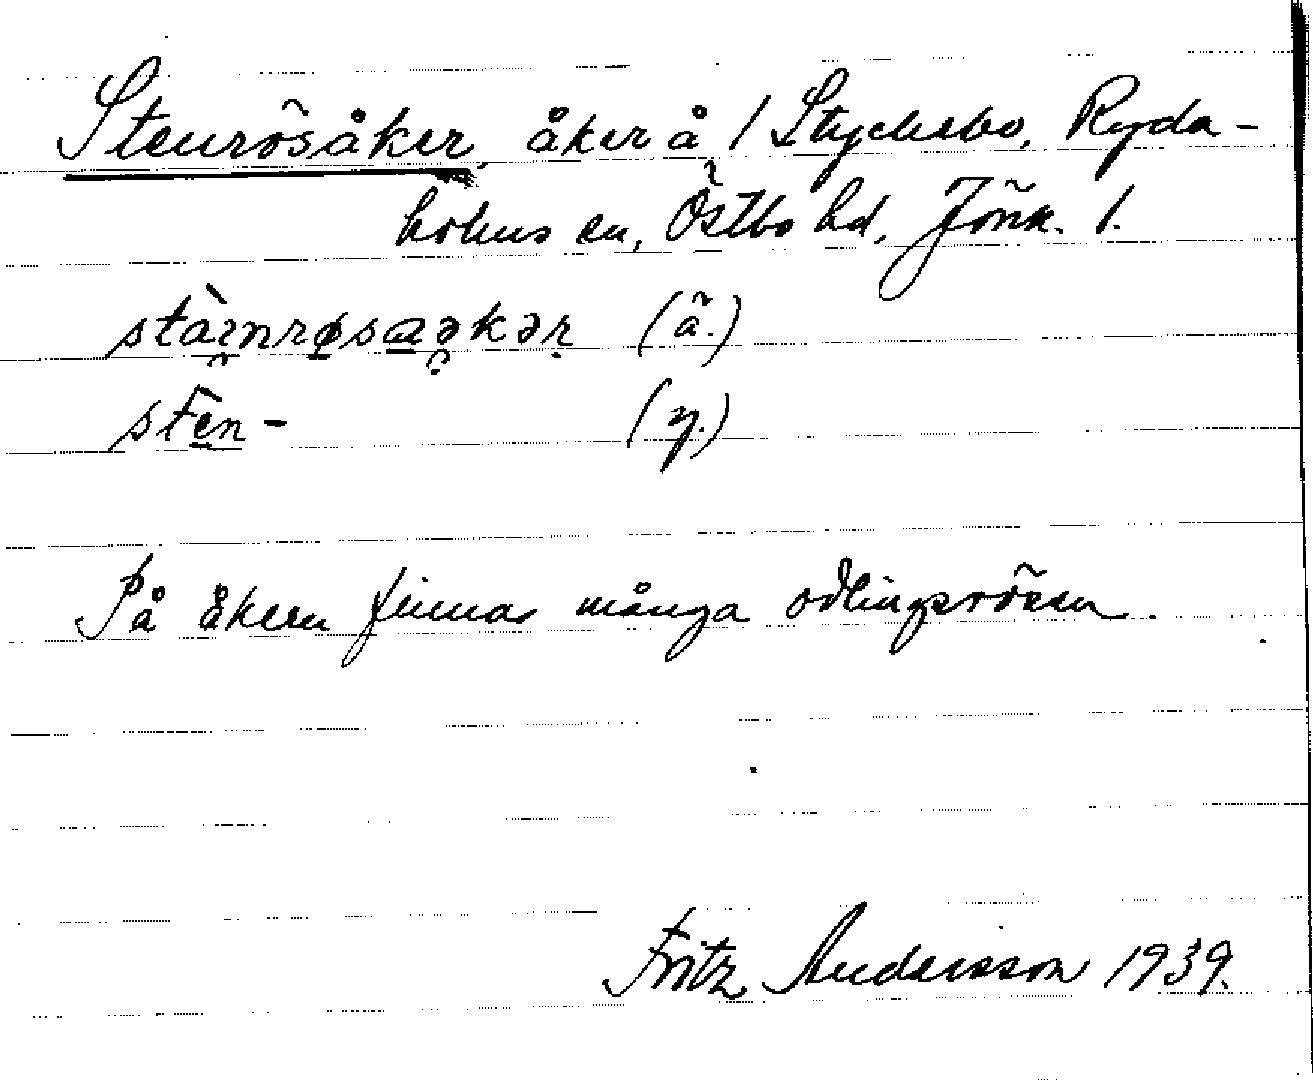 Stenrösåker, åker å / Stychsbo, Ryda-
holms sn, Östbo hd, Jönk. l.
stàɪnrøsaəkər (ä.)
stèn- (y.)
På åkern finnas många odlingsrösen.
Fritz Andersson 1939.